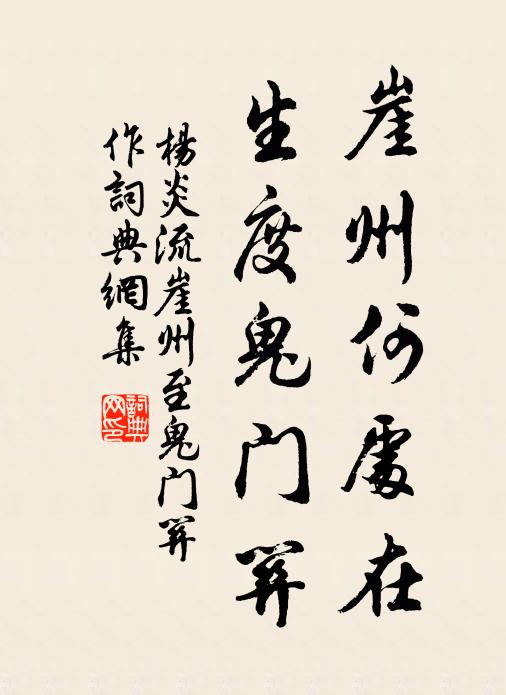 崖州何處在
生度鬼門關
楊炎流崖州至鬼門關
作詞典網集
詞典
网印